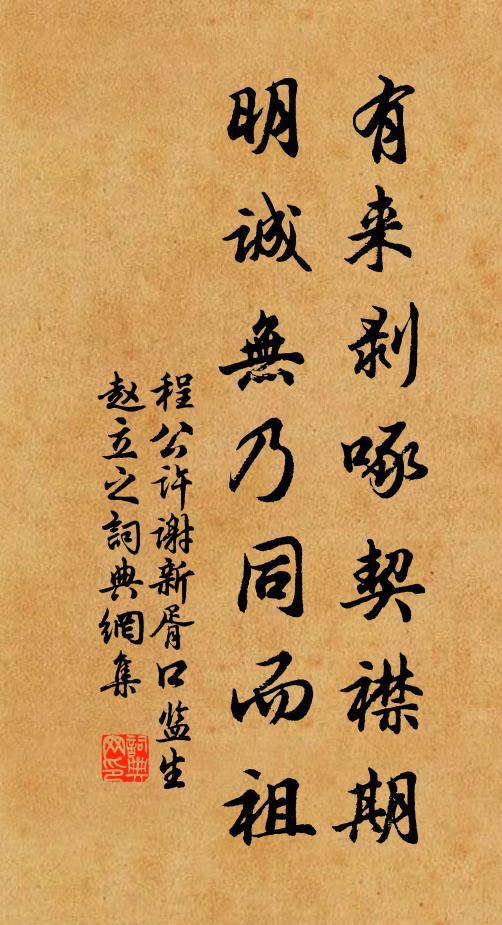 有来剥啄契襟期
明诚無乃同而祖
程公许谢新胥口监生
赵立之詞典網集
詞典
网印